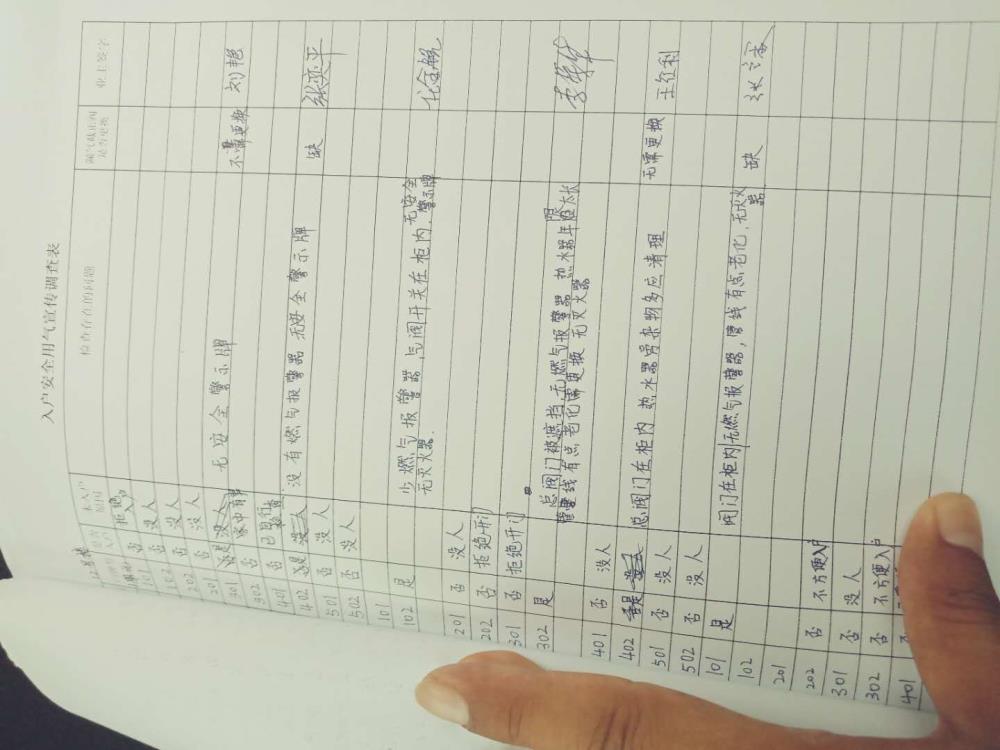 入户安全用气宣传调查表
是否入户 未入户原因 检查存在的问题 是否更换 业主签字
否 拒绝入户
101 否 没人
102 否 没人
202 否 没人
201 是 家中有事 无安全警示牌 不需更换 刘艳
301
302 否 已自行检查
202
401 是 没有燃气报警器 无安全警示牌 缺 张奕平
402 否 没人
501 否 没人
502
101 是 少燃气报警器,气阀开关在柜内,无安全警示牌
102 无灭火器.
201 否 没人
202 否 拒绝开门
301 否 拒绝开门
302 是 总阀门被遮挡 无燃气报警器 热水器年限太长
管线有点老化需更换 无灭火器
401 否 没人
402 是 总阀门在柜内 热水器旁杂物多应清理 无需更换 王红利
501 否 没人
502 否 没人
101 是 阀门在柜内 无燃气报警器,管线有点老化,无灭火器 缺
102
201
202 否 不方便入户
301 否 没人
302 否 不方便入户
401 否